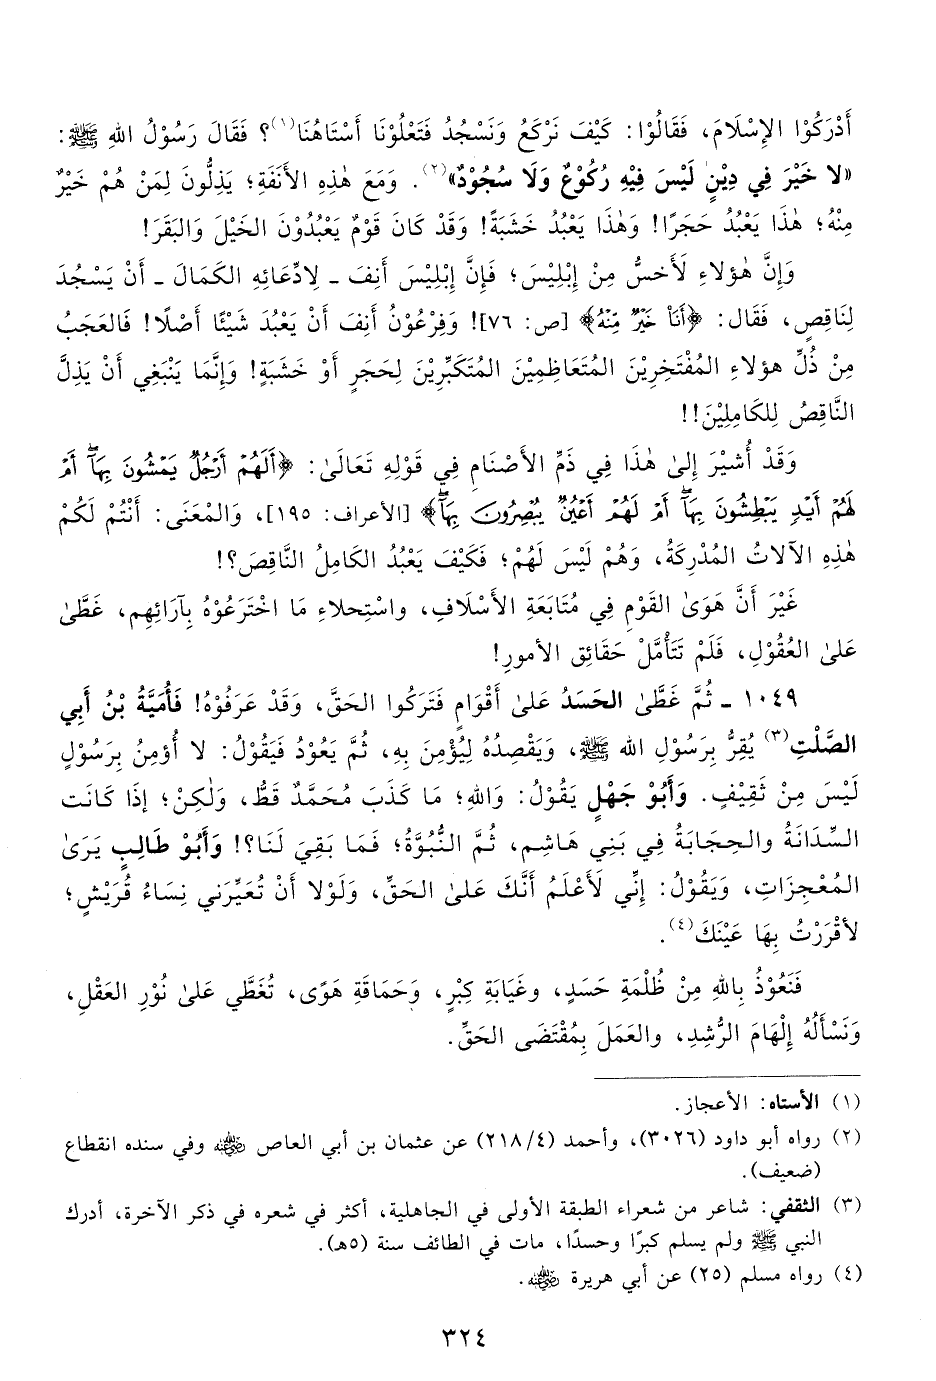 أَدْرَكُوْا الإِسْلَامَ، فَقَالُوْا: كَيْفَ نَرْكَعُ وَنَسْجُدُ فَتَعْلُوْنَا أَسْتَاهُنَا(١)؟ فَقَالَ رَسُوْلُ اللهِ ﷺ:
«لا خَيْرَ فِي دِيْنٍ لَيْسَ فِيْهِ رُكُوْعٌ وَلَا سُجُوْدٌ»(٢). وَمَعَ هٰذِهِ الأَنَفَةِ؛ يَذِلُّونَ لِمَنْ هُمْ خَيْرٌ
مِنْهُ؛ هٰذَا يَعْبُدُ حَجَرًا! وَهٰذَا يَعْبُدُ خَشَبَةً! وَقَدْ كَانَ قَوْمٌ يَعْبُدُوْنَ الخَيْلَ وَالبَقَرَ!
وَإِنَّ هٰؤلاءِ لَأَخسُّ مِنْ إِبْلِيْسَ؛ فَإِنَّ إِبْلِيْسَ أَنِفَ ـ لِادِّعَائِهِ الكَمَالَ ـ أَنْ يَسْجُدَ
لِنَاقِصٍ، فَقَالَ: ﴿أَنَا۠ خَيْرٌ مِّنْهُ﴾ [ص: ٧٦]! وَفِرْعَوْنُ أَنِفَ أَنْ يَعْبُدَ شَيْئًا أَصْلًا! فَالعَجَبُ
مِنْ ذُلِّ هؤلاءِ المُفْتَخِرِيْنَ المُتَعَاظِمِيْنَ المُتَكَبِّرِيْنَ لِحَجَرٍ أَوْ خَشَبَةٍ! وَإِنَّمَا يَنْبَغِي أَنْ يَذِلَّ
النَّاقِصُ لِلكَامِلِيْنَ!!
وَقَدْ أُشِيْرَ إِلىٰ هٰذَا فِي ذَمِّ الأَصْنَامِ فِي قَوْلِهِ تَعَالَىٰ: ﴿أَلَهُمْ أَرْجُلٌ يَمْشُونَ بِهَآ أَمْ
لَهُمْ أَيْدٍ يَبْطِشُونَ بِهَآ أَمْ لَهُمْ أَعْيُنٌ يُبْصِرُونَ بِهَآ﴾ [الأعراف: ١٩٥]، وَالْمْعْنَى: أَنْتُمْ لَكُمْ
هٰذِهِ الآلاتُ المُدْرِكَةُ، وَهُمْ لَيْسَ لَهُمْ؛ فَكَيْفَ يَعْبُدُ الكَامِلُ النَّاقِصَ؟!
غَيْرَ أَنَّ هَوَىٰ القَوْمِ فِي مُتَابَعَةِ الأَسْلَافِ، واسْتِحلاءِ مَا اخْتَرَعُوْهُ بِآرَائِهِم، غَطَّىٰ
عَلىٰ العُقُوْلِ، فَلَمْ تَتَأَمَّلْ حَقَائِق الأمورِ!
١٠٤٩ ـ ثُمَّ غَطَّىٰ الحَسَدُ عَلىٰ أَقْوَامٍ فَتَرَكُوا الحَقَّ، وَقَدْ عَرَفُوْهُ! فَأُمَيَّةُ بْنُ أَبِي
الصَّلْتِ(٣) يُقِرُّ بِرَسُوْلِ الله ﷺ، وَيَقْصِدُهُ لِيُؤْمِنَ بِهِ، ثُمَّ يَعُوْدُ فَيَقُوْلُ: لا أُؤمِنُ بِرَسُوْلٍ
لَيْسَ مِنْ ثَقِيْفٍ. وَأَبُوْ جَهْلٍ يَقُوْلُ: وَاللهِ؛ مَا كَذَبَ مُحَمَّدٌ قَطُّ، وَلٰكِنْ؛ إِذَا كَانَت
السِّدَانَةُ والحِجَابَةُ فِي بَنِي هَاشِمٍ، ثُمَّ النُّبُوَّةُ؛ فَمَا بَقِيَ لَنَا؟! وَأَبُوْ طَالِبٍ يَرَىٰ
المُعْجِزَاتِ، وَيَقُوْلُ: إِنِّي لَأَعْلَمُ أَنَّكَ عَلىٰ الحَقِّ، وَلَوْلا أَنْ تُعَيِّرَني نِسَاءُ قُرَيْشٍ؛
لأقْرَرْتُ بِهَا عَيْنَكَ(٤).
فَنَعُوْذُ بِاللهِ مِنْ ظُلْمَةِ حَسَدٍ، وغَيَابَةِ كِبْرٍ، وَحَمَاقَةِ هَوًى، تُغَطِّي عَلىٰ نُوْرِ العَقْلِ،
وَنَسْأَلُهُ إِلْهَامَ الرُّشِدِ، والعَمَلَ بِمُقْتَضَى الحَقِّ.
(١) الأستاه: الأعجاز.
(٢) رواه أبو داود (٣٠٢٦)، وأحمد (٢١٨/٤) عن عثمان بن أبي العاص رضي الله عنه وفي سنده انقطاع
(ضعيف).
(٣) الثقفي: شاعر من شعراء الطبقة الأولى في الجاهلية، أكثر في شعره في ذكر الآخرة، أدرك
النبي ﷺ ولم يسلم كبرًا وحسدًا، مات في الطائف سنة (٥هـ).
(٤) رواه مسلم (٢٥) عن أبي هريرة رضي الله عنه.
٣٢٤